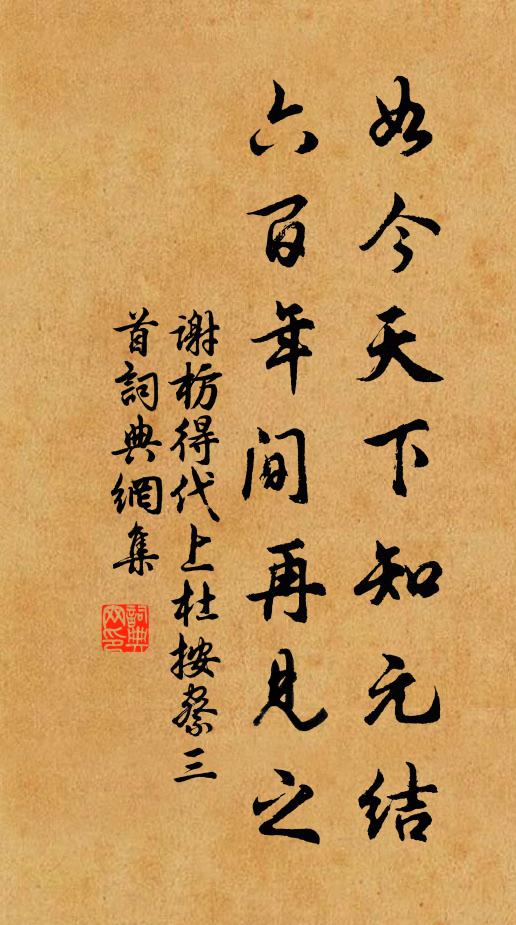 如今天下知元结
六百年间再見之
谢枋得代上杜按察三
首詞典網集
詞典
网印